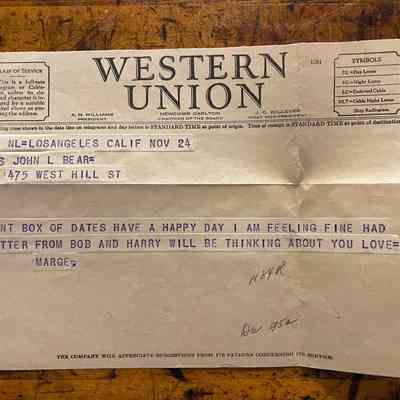 CLASS OF SERVICE
WESTERN
UNION
1201
SYMBOLS
DL=Day Letter
NL=Night Letter
LC=Deferred Cable
NLT=Cable Night Letter
Ship Radiogram
This is a full-rate
Telegram or Cable-
gram unless its de-
ferred character is in-
dicated by a suitable
above or
preceding the address.
NEWCOMB CARLTON
CHAIRMAN OF THE BOARD
J. C. WILLEVER
FIRST VICE-PRESIDENT
PRESIDENT
time shown in the date line on telegrams and day letters is STANDARD TIME at point of origin. Time of receipt is STANDARD TIME at point of destination
NL=LOSANGELES CALIF NOV 24
S JOHN L BEAR=
475 WEST HILL ST
NT BOX OF DATES HAVE A HAPPY DAY I AM FEELING FINE HAD
TTER FROM BOB AND HARRY WILL BE THINKING ABOUT YOU LOVE=
MARGE.
THE COMPANY WILL APPRECIATE SUGGESTIONS FROM ITS PATRONS CONCERNING ITS SERVICE